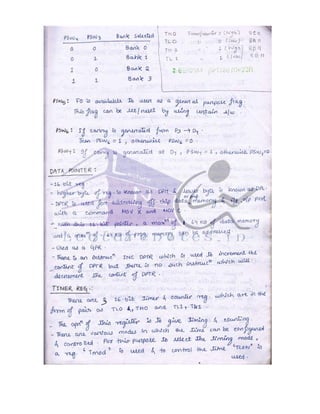 PSW4 PSW3 Bank Selected
0 0 Bank 0
0 1 Bank 1
1 0 Bank 2
1 1 Bank 3
TH0 Timer/Counter 0 (high)
TL0 0 (low)
TH1 1 (high)
TL1 1 (low)
PSW5: F0 is available to user as a general purpose flag.
This flag can be set/reset by using s/w.
PSW6: If carry is generated from D3 → D4
Then PSW6 = 1, otherwise PSW6 = 0.
PSW7: If carry is generated at D7, PSW7 = 1, otherwise PSW7=0
DATA POINTER:
- 16 bit reg.
- higher byte of reg. is known as DPH & lower byte is known
- DPTR is used for addressing off chip data memory &
with a command MOV X and MOV C
- with this 16-bit pointer, a of 64 KB of data memory
and of of prog. memory can be addressed
- Used as a GPR
- There is an INC DPTR which is used to increment the
content of DPTR but there is no such which will
decrement the content of DPTR.
TIMER REG:
There are 16-bit timer & counter reg. which are in the
form of pair as TL0 &, TH0 and TL1, TH1
- The of this register is to give timing & counting
- There are various modes in which the time can be configured
& controlled For this purpose to select the timing mode,
a reg "Tmod" is used & to control the time "Tcon" is
used.